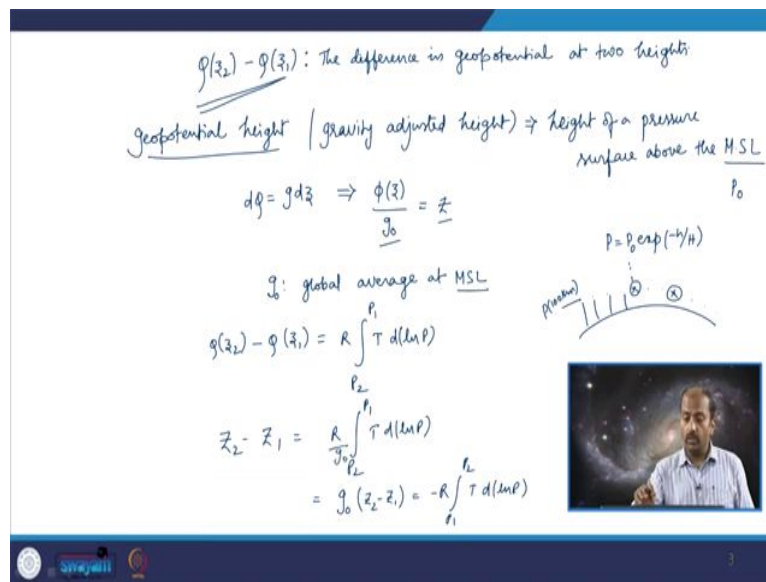 φ(z₂) − φ(z₁) : The difference in geopotential at two heights.
geopotential height (gravity adjusted height) ⇒ height of a pressure
surface above the MSL
P₀
dφ = g dz ⇒ φ(z)/g₀ = Z
P = P₀ exp(-h/H)
g₀ : global average at MSL
φ(z₂) − φ(z₁) = R ∫_{P₂}^{P₁} T d(ln P)
Z₂ − Z₁ = R/g₀ ∫_{P₂}^{P₁} T d(ln P)
= g₀ (Z₂ − Z₁) = −R ∫_{P₁}^{P₂} T d(ln P)
swayam
3